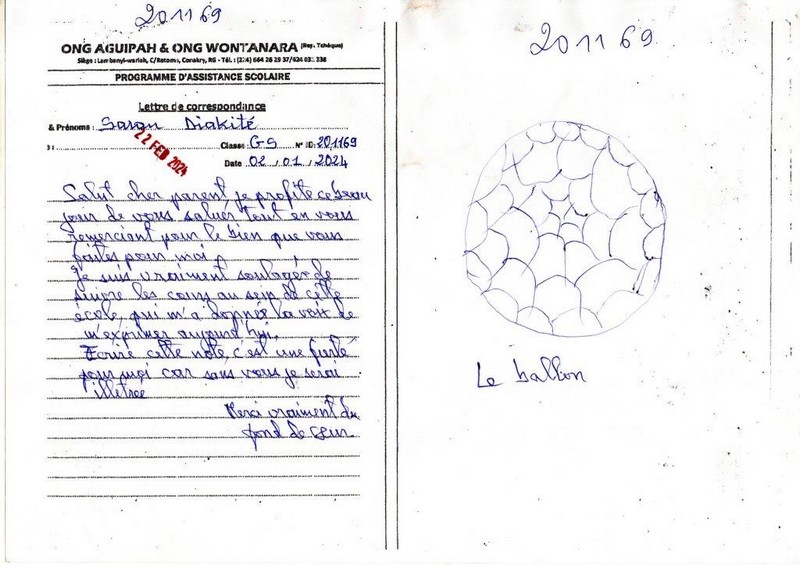 201169
ONG AGUIPAH & ONG WONTANARA (Rep. Tchèque)
Siège : Lambanyi-wariah, C/Ratoma, Conakry, RG - Tél. : (224) 664 26 29 37/624 03 338
PROGRAMME D'ASSISTANCE SCOLAIRE
Lettre de correspondance
& Prénoms : Saran Diakité
Classe : GS N° ID: 201169
22 FEV 2024
Date 02, 01, 2024
Salut cher parent je profite ce beau
jour de vous saluér tout en vous
remerciant pour le bien que vous
faites pour moi,
Je suis vraiment soulagér de
suivre les cours au sein de cette
école, qui m'a donnée la voix de
m'exprimer aujourd'hui.
Ecrire cette note, c'est une fierté
pour moi car sans vous je serai
illetrée
Merci vraiment du
fond de cœur
201169
Le ballon